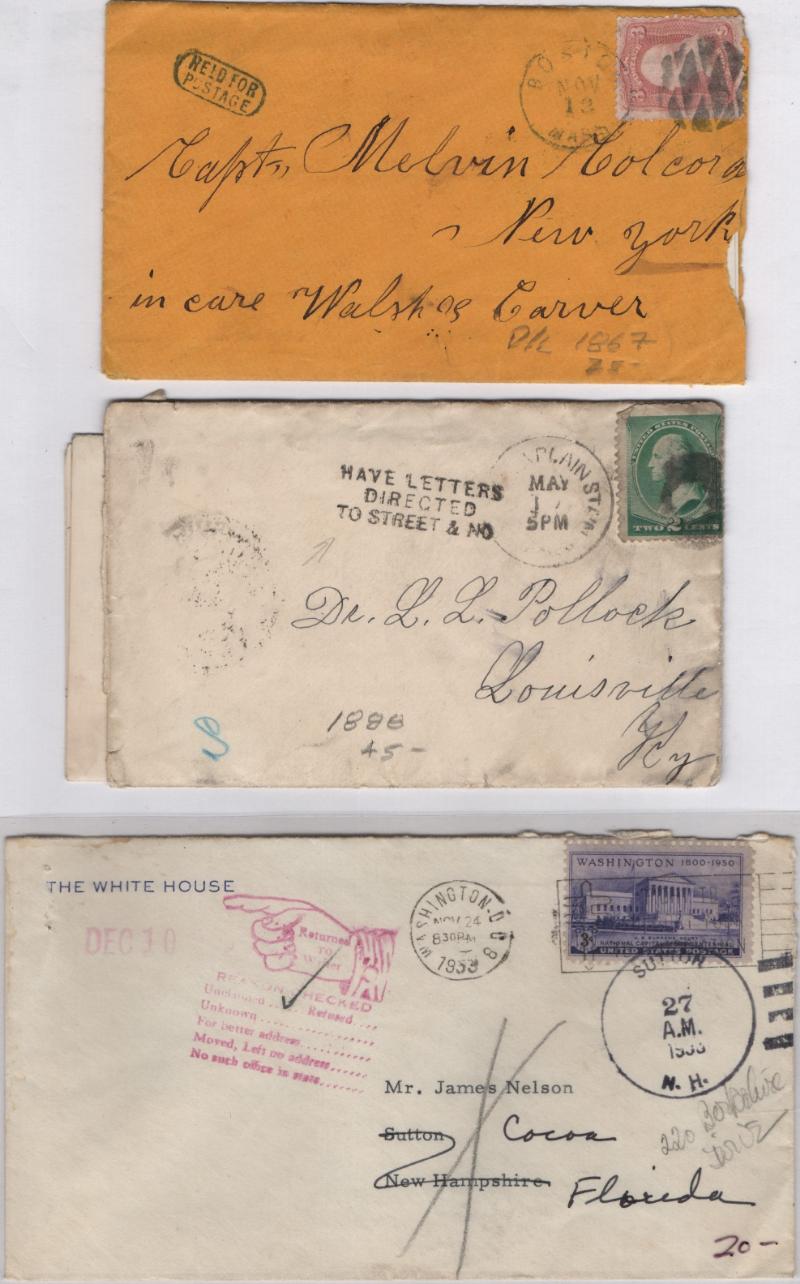 HELD FOR
POSTAGE
BOSTON
NOV
13
MASS.
3 3
Capt., Melvin Colcord
New York
in care Walsh & Carver
P/L 1867
25-
HAVE LETTERS
DIRECTED
TO STREET & NO
PLAIN STA
MAY
5PM
UNITED STATES POSTAGE
TWO 2 CENTS
Dr. L. L. Pollock
Louisville
Ky
1888
45-
THE WHITE HOUSE
DEC 10
Returned
TO
Writer
REASON CHECKED
Unclaimed..... Refused....
Unknown............
For better address............
Moved, Left no address........
No such office in state.......
WASHINGTON D C
NOV 24
830PM
1953
8
WASHINGTON 1800-1950
NATIONAL CAPITAL SESQUICENTENNIAL
3¢ UNITED STATES POSTAGE
SUTTON
27
A.M.
N. H.
Mr. James Nelson
Sutton Cocoa
New Hampshire Florida
220
20-